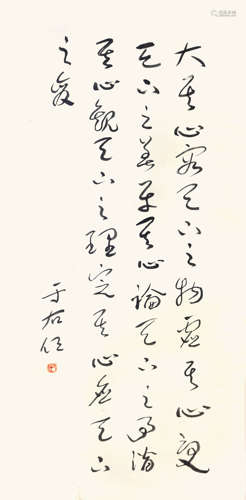 大其心容天下之物虛其心受
天下之善平其心論天下之事潛
其心觀天下之理定其心應天下
之變
于右任